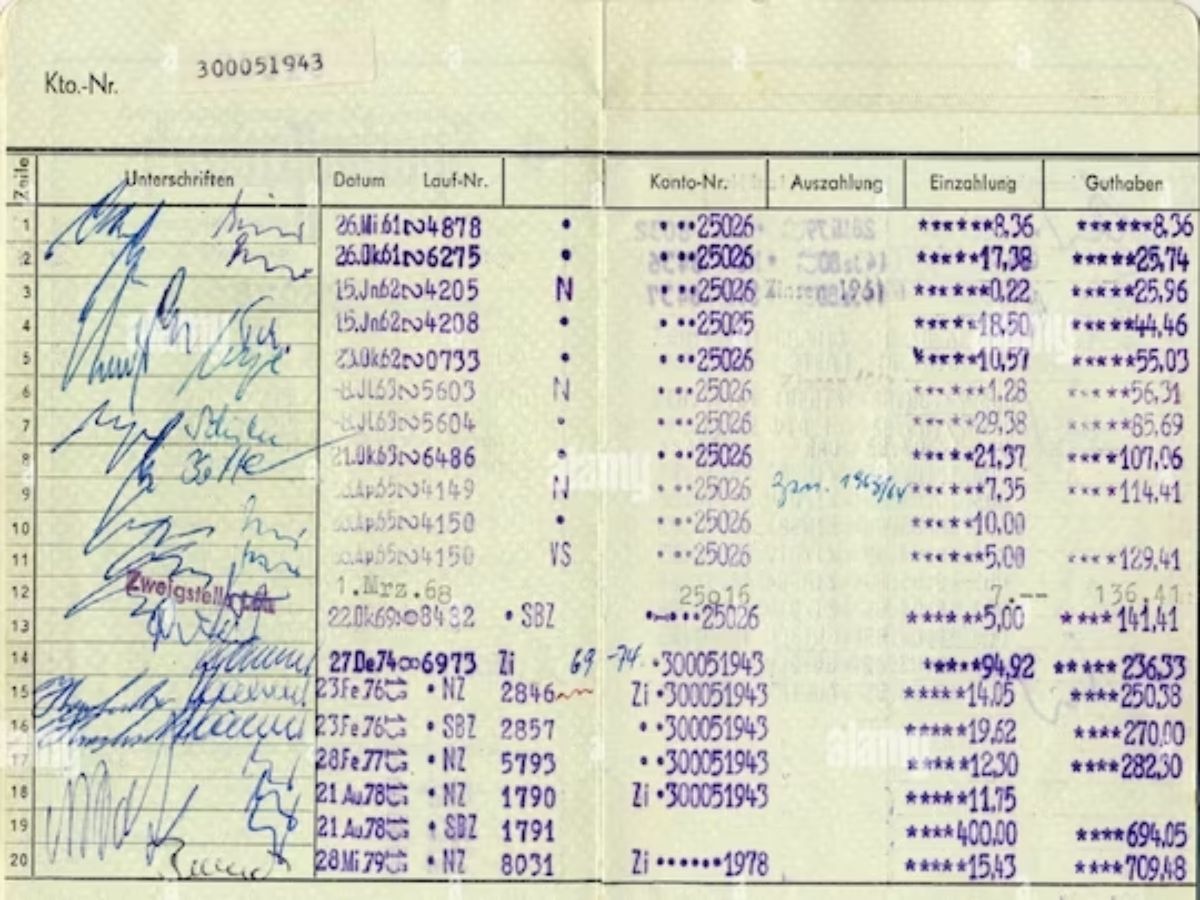 Kto.-Nr. 300051943
Zeile Unterschriften Datum Lauf-Nr. Konto-Nr. Auszahlung Einzahlung Guthaben
1 26.Mi61 4878 • •••25026 ******8,36 ******8,36
2 26.Ok61 6275 • •••25026 *****17,38 *****25,74
3 15.Jn62 4205 N •••25026 ******0,22 *****25,96
4 15.Jn62 4208 • •••25025 *****18,50 *****44,46
5 23.Ok62 0733 • •••25026 *****10,57 *****55,03
6 8.Jl63 5603 N •••25026 ******1,28 *****56,31
7 8.Jl63 5604 • •••25026 *****29,38 *****85,69
8 21.Ok63 6486 • •••25026 *****21,37 ****107,06
9 Ap65 4149 N •••25026 ******7,35 ****114,41
10 Ap65 4150 • •••25026 *****10,00
11 Ap65 4150 VS •••25026 ******5,00 ****129,41
12 Zweigstelle 1.Mrz.68 7.-- 136,41
13 22.Ok69 8482 •SBZ •••25026 ******5,00 ****141,41
14 27De74 6973 Zi 69 -74. •300051943 *****94,92 *****236,33
15 23Fe76 •NZ 2846 Zi •300051943 *****14,05 ****250,38
16 23Fe76 •SBZ 2857 ••300051943 *****19,62 ****270,00
17 28Fe77 •NZ 5793 ••300051943 *****12,30 ****282,30
18 21Au78 •NZ 1790 Zi •300051943 *****11,75
19 21Au78 •SBZ 1791 ****400,00 ****694,05
20 28Mi79 •NZ 8031 Zi ••••••1978 *****15,43 ****709,48